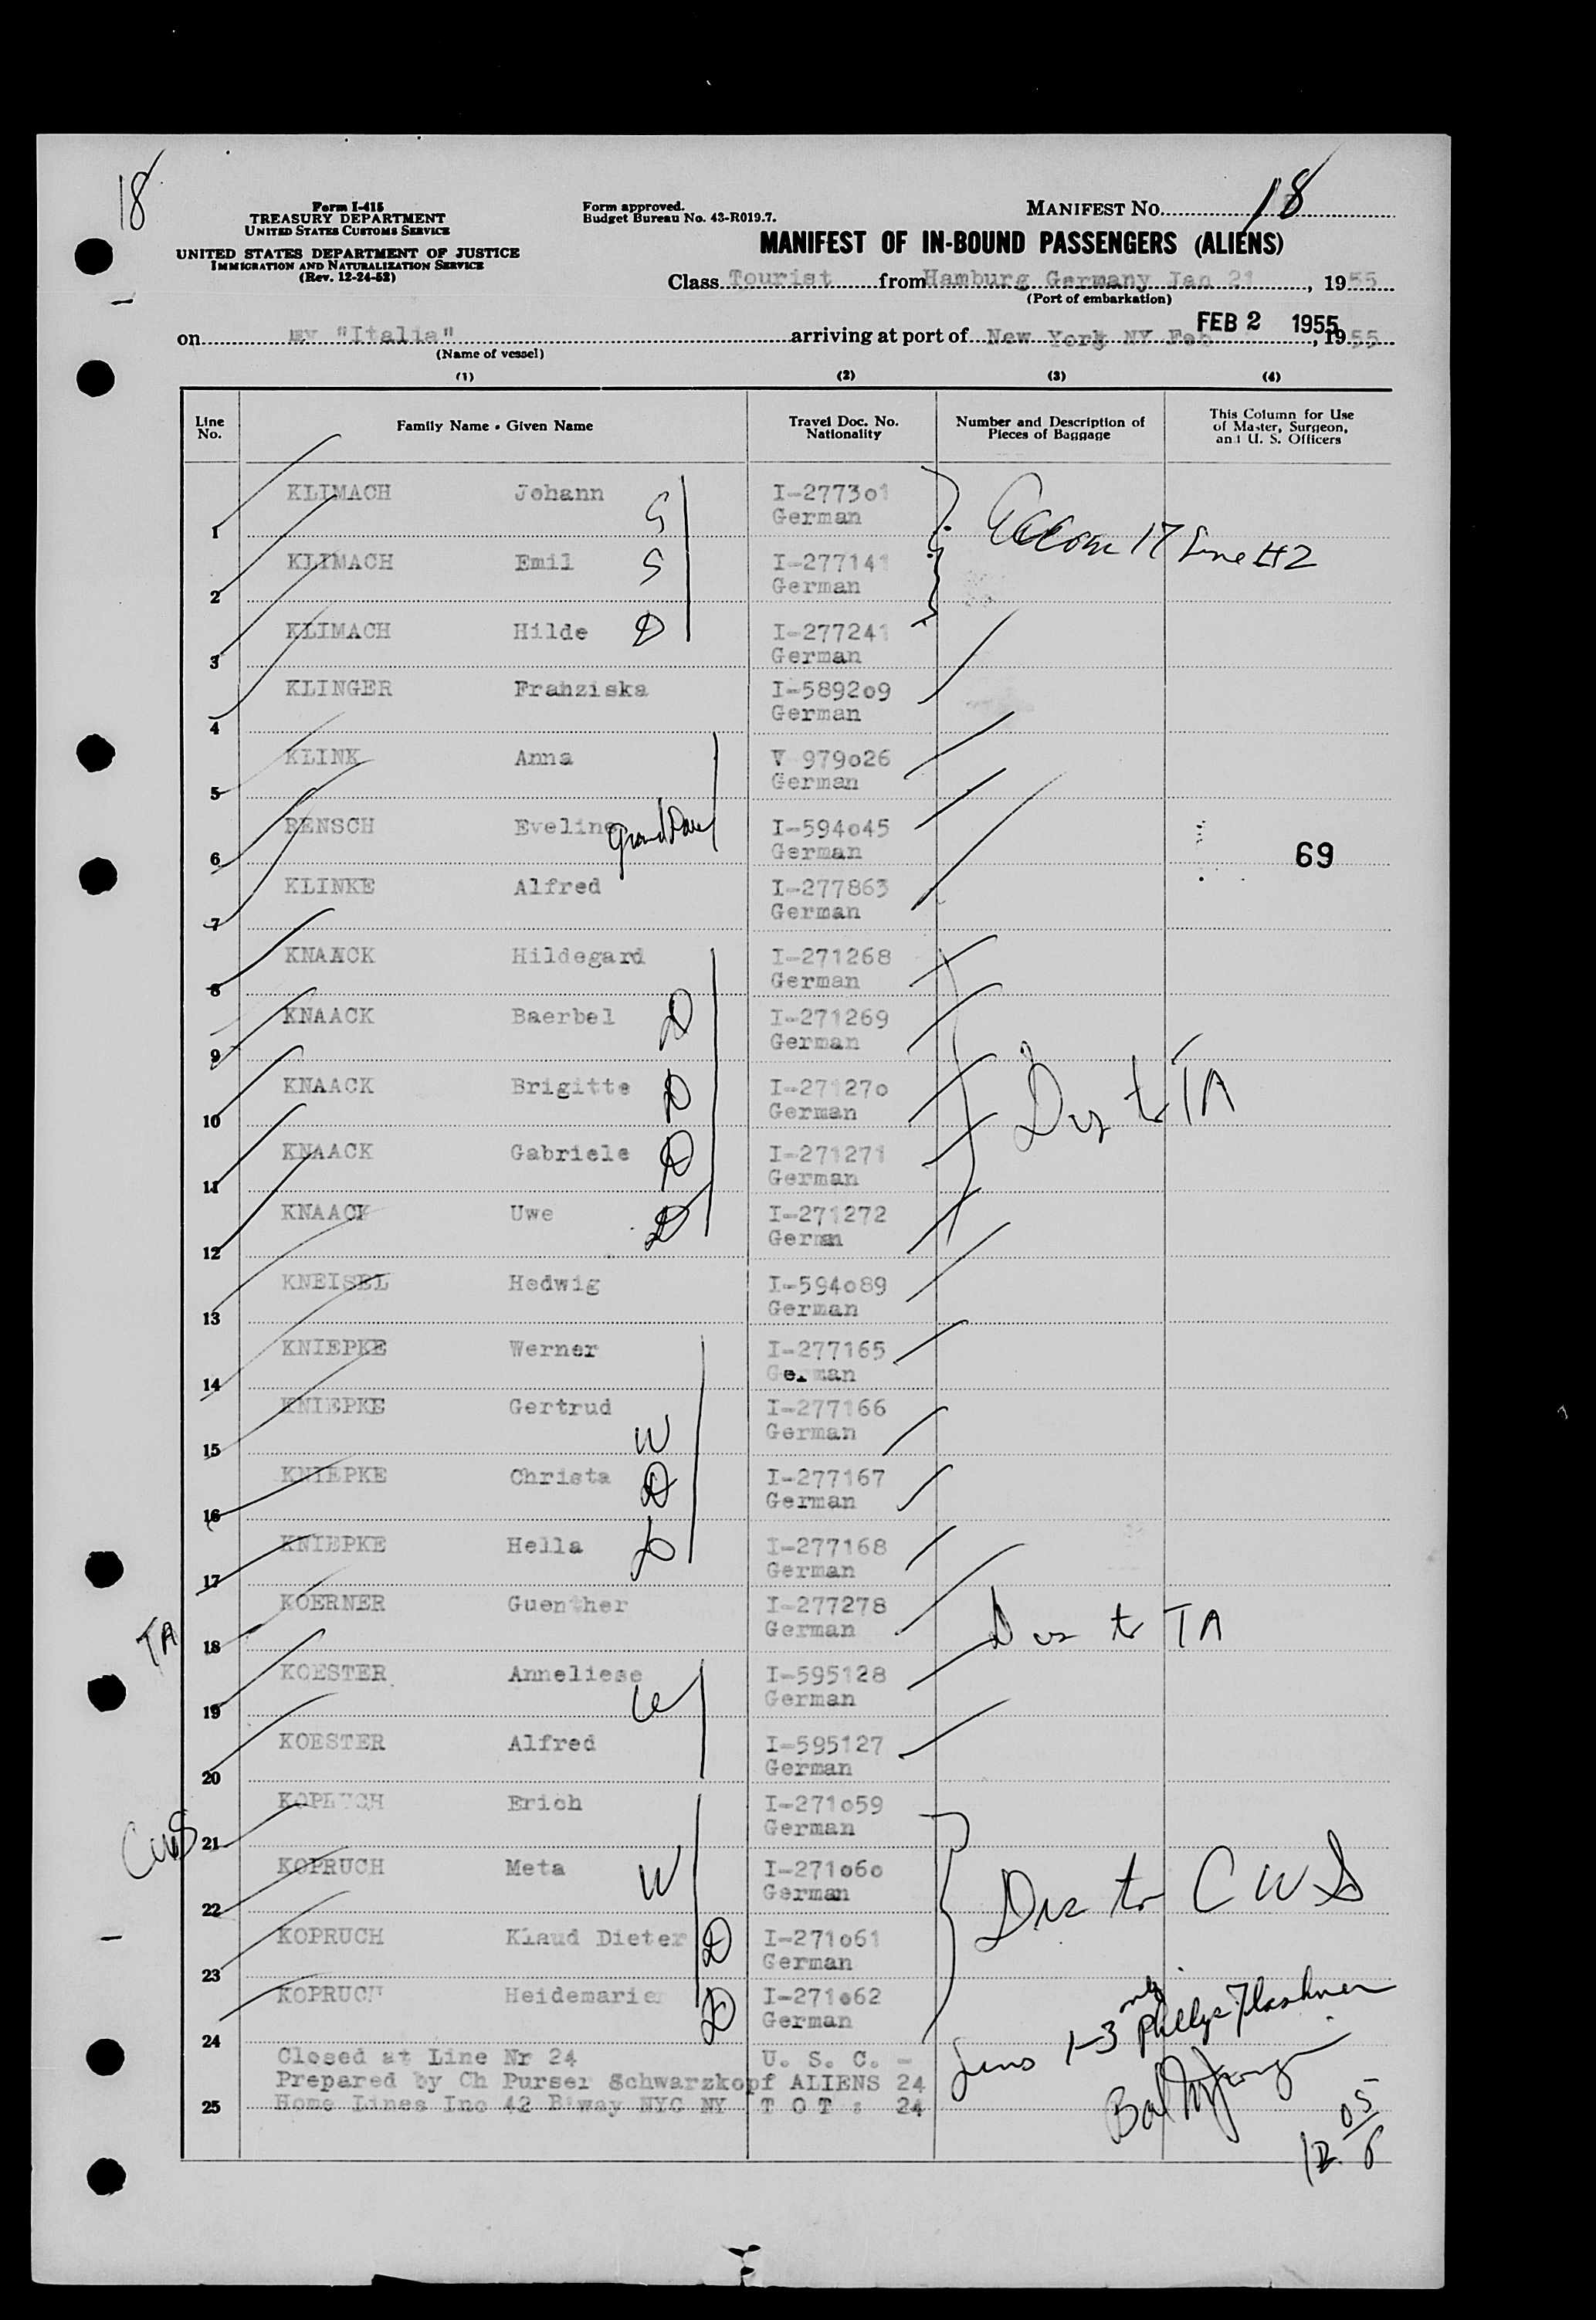 18
Form I-415
TREASURY DEPARTMENT
UNITED STATES CUSTOMS SERVICE
UNITED STATES DEPARTMENT OF JUSTICE
IMMIGRATION AND NATURALIZATION SERVICE
(Rev. 12-24-52)
Form approved.
Budget Bureau No. 43-R019.7.
MANIFEST NO. 18
MANIFEST OF IN-BOUND PASSENGERS (ALIENS)
Class Tourist from Hamburg Germany Jan 21, 1955
(Port of embarkation)
on mv "Italia" arriving at port of New York NY Feb FEB 2 1955, 1955
(Name of vessel)
(1) (2) (3) (4)
Line No. Family Name - Given Name Travel Doc. No. Nationality Number and Description of Pieces of Baggage This Column for Use of Master, Surgeon, and U. S. Officers
1 KLIMACH Johann S I-277301 German
17 Line #2
2 KLIMACH Emil S I-277141 German
3 KLIMACH Hilde D I-277241 German
4 KLINGER Franziska I-589209 German
5 KLINK Anna V 979026 German
6 RENSCH Eveline I-594045 German 69
7 KLINKE Alfred I-277863 German
8 KNAACK Hildegard I-271268 German
9 KNAACK Baerbel D I-271269 German
10 KNAACK Brigitte D I-271270 German to TA
11 KNAACK Gabriele D I-271271 German
12 KNAACK Uwe D I-271272 German
13 KNEISEL Hedwig I-594089 German
14 KNIEPKE Werner I-277165 German
15 KNIEPKE Gertrud W I-277166 German
16 KNIEPKE Christa D I-277167 German
17 KNIEPKE Hella D I-277168 German
TA 18 KOERNER Guenther I-277278 German to TA
19 KOESTER Anneliese W I-595128 German
20 KOESTER Alfred I-595127 German
CWS 21 KOPRUCH Erich I-271059 German
22 KOPRUCH Meta W I-271060 German to CWS
23 KOPRUCH Klaud Dieter D I-271061 German
24 KOPRUCH Heidemarie D I-271062 German
Closed at Line Nr 24 U. S. C. -
Prepared by Ch Purser Schwarzkopf ALIENS 24
25 Home Lines Inc 42 B'way NYC NY T O T : 24
1-3